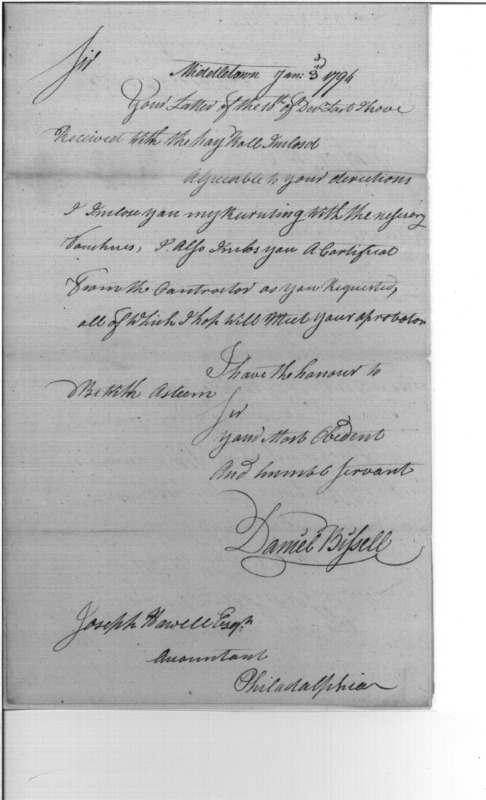 Sir
Middletown Jan: 3d 1794
Your Latter of the 18th of Decr Last I have
Received with the pay Roll Inclosd
Agreeable to your directions
I Inclose you my Recruting with the nessery
Vouchues, I Also Inclos you A Certificat
From the Contractor as you Requested,
all of Which I hop Will Meet your aprobation
I have the honour to
Be With Asteem
Sir
your Most Obedent
And humble Servant
Daniel Bissell
Joseph Howell Esqr.
Accountant
Philadalphia